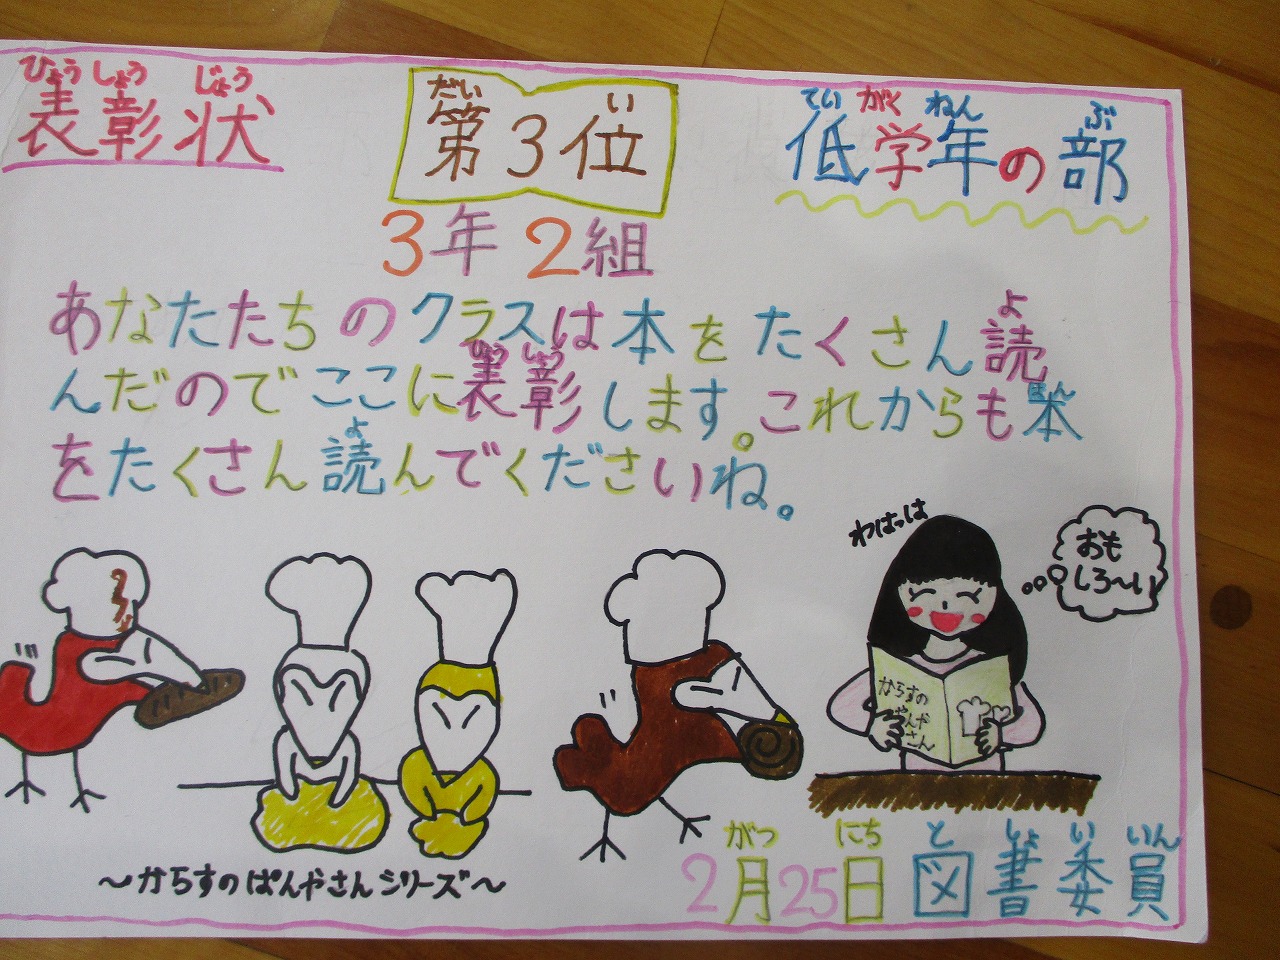 ひょうしょうじょう
表彰状
だい い
第3位
ていがくねん ぶ
低学年の部
3年2組
あなたたちのクラスは本をたくさん読
よ
んだのでここに表彰します。これからも本
ひょうしょう
をたくさん読んでくださいね。
よ
わはっは
おも
しろ〜い
からすの
ぱんや
さん
〜からすのぱんやさんシリーズ〜
がつ にち としょいいん
2月25日 図書委員